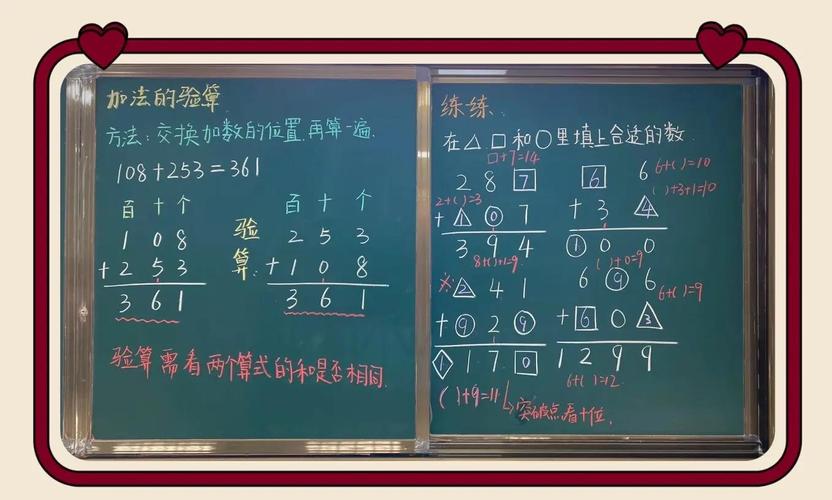 加法的验算
方法：交换加数的位置，再算一遍.
108+253=361
百 十 个
1 0 8
+ 2 5 3
3 6 1
验算：
百 十 个
2 5 3
+ 1 0 8
3 6 1
验算需看两个算式的和是否相同.
练一练：
在△、□和○里填上合适的数.
□+7=14
2 8 7
2+( )=3
+ 1 0 7
3 9 4
8+( )+1=9
6 6
6+( )=10
( )+3+1=10
+ 3 4
1 0 0
※ 2 4 1
+ 9 2 9
1 1 7 0
( )+9=11
突破点看十位.
( )+0=9
6 9 6
6+( )=9
+ 6 0 3
1 2 9 9
6+( )=12